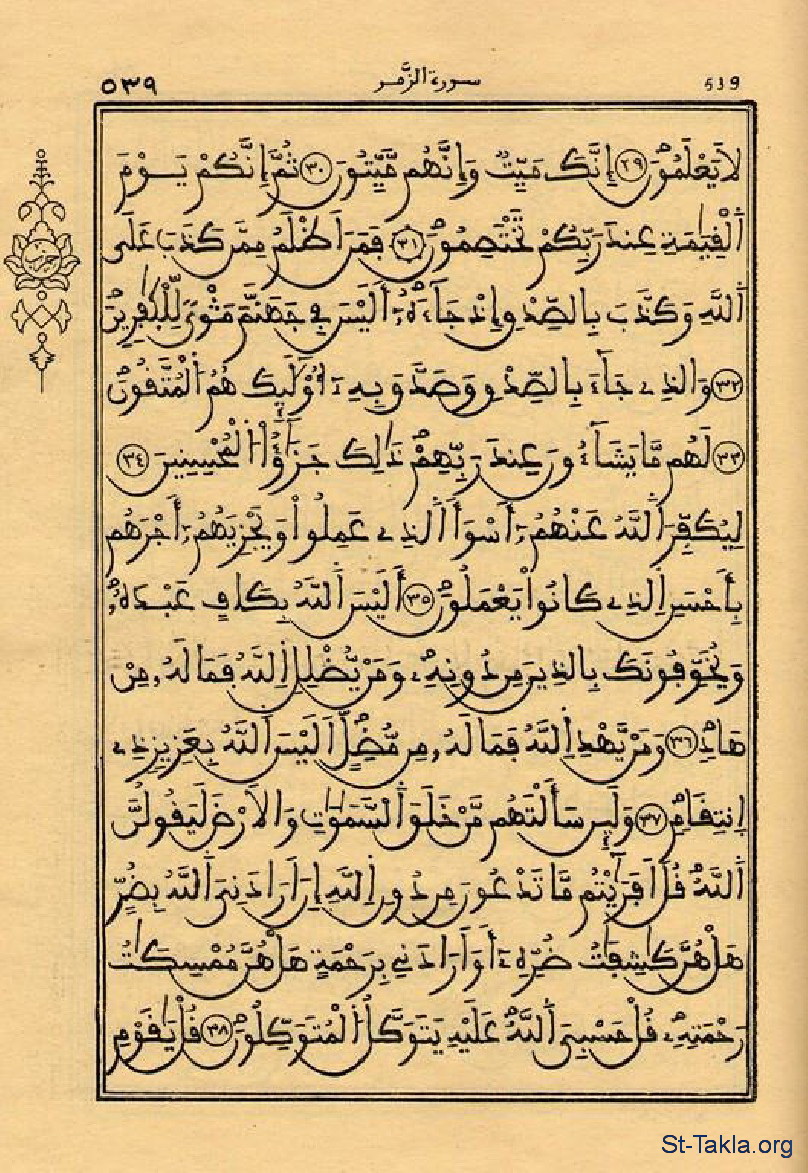 539 سورة الزُّمر ٥٣٩
لَا يَعْلَمُونَ ٢٩ إِنَّكَ مَيِّتٌ وَإِنَّهُم مَّيِّتُونَ ٣٠ ثُمَّ إِنَّكُمْ يَوْمَ
اَلْقِيَٰمَةِ عِندَ رَبِّكُمْ تَخْتَصِمُونَ ٣١ فَمَنَ اَظْلَمُ مِمَّن كَذَبَ عَلَى
حزب
اَللَّهِ وَكَذَّبَ بِالصِّدْقِ إِذْ جَآءَهُۥٓ أَلَيْسَ فِي جَهَنَّمَ مَثْوىً لِّلْكَٰفِرِينَ
٣٢ وَالذِے جَآءَ بِالصِّدْقِ وَصَدَّقَ بِهِۦٓ أُوْلَٰٓئِكَ هُمُ الْمُتَّقُونَ
٣٣ لَهُم مَّا يَشَآءُونَ عِندَ رَبِّهِمْ ذَٰلِكَ جَزَٰٓؤُاْ الْمُحْسِنِينَ ٣٤
لِيُكَفِّرَ اَللَّهُ عَنْهُمُۥٓ أَسْوَأَ اَلذِے عَمِلُواْ وَيَجْزِيَهُمُۥٓ أَجْرَهُم
بِأَحْسَنِ اِلذِے كَانُواْ يَعْمَلُونَ ٣٥ أَلَيْسَ اَللَّهُ بِكَافٍ عَبْدَهُۥ
وَيُخَوِّفُونَكَ بِالذِينَ مِن دُونِهِۦ وَمَنْ يُّضْلِلِ اِللَّهُ فَمَا لَهُۥ مِنْ
هَادٍ ٣٦ وَمَنْ يَّهْدِ اِللَّهُ فَمَا لَهُۥ مِن مُّضِلٍّ اَلَيْسَ اَللَّهُ بِعَزِيزٍ ذِے
اِنتِقَامٍ ٣٧ وَلَئِن سَأَلْتَهُم مَّنْ خَلَقَ اَلسَّمَٰوَٰتِ وَالَارْضَ لَيَقُولُنَّ
اَللَّهُ قُلَ اَفَرَٰٓيْتُم مَّا تَدْعُونَ مِن دُونِ اِللَّهِ إِنَ اَرَادَنِيَ اَللَّهُ بِضُرٍّ
هَلْ هُنَّ كَٰشِفَٰتُ ضُرِّهِۦٓ أَوَ اَرَادَنِي بِرَحْمَةٍ هَلْ هُنَّ مُمْسِكَٰتُ
رَحْمَتِهِۦ قُلْ حَسْبِيَ اَللَّهُ عَلَيْهِ يَتَوَكَّلُ اُلْمُتَوَكِّلُونَ ٣٨ قُلْ يَٰقَوْمِ
St-Takla.org